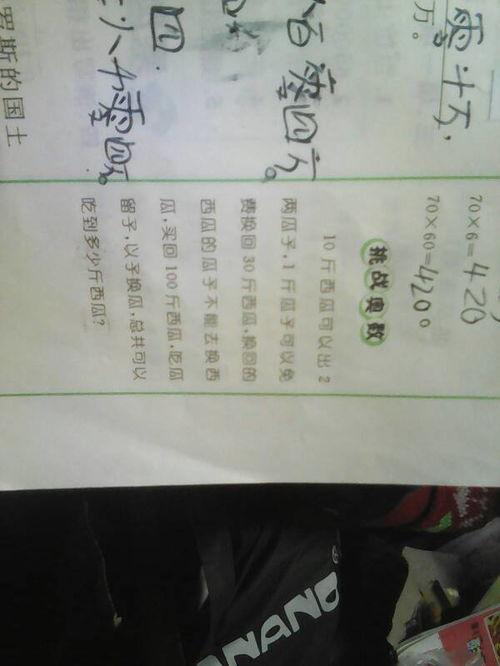 零十万,
万。
百零四万。
四.
八千零四万。
罗斯的国土
70×6=420
70×60=4200
挑战奥数
10 斤西瓜可以出 2
两瓜子,1 斤瓜子可以免
费换回 30 斤西瓜,换回的
西瓜的瓜子不能去换西
瓜,买回 100 斤西瓜,吃瓜
留子,以子换瓜,总共可以
吃到多少斤西瓜?
NANO